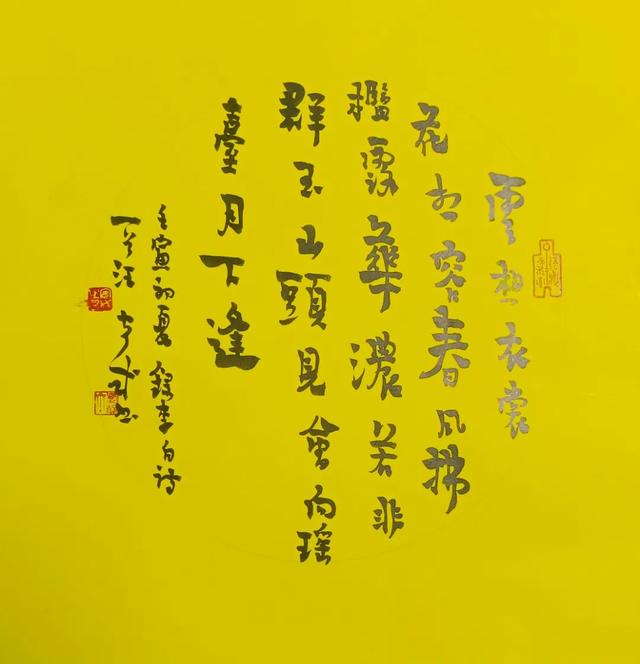 雲想衣裳
花想容春风拂
檻露華濃若非
群玉山頭見會向瑶
臺月下逢
壬寅初夏錄李白詩